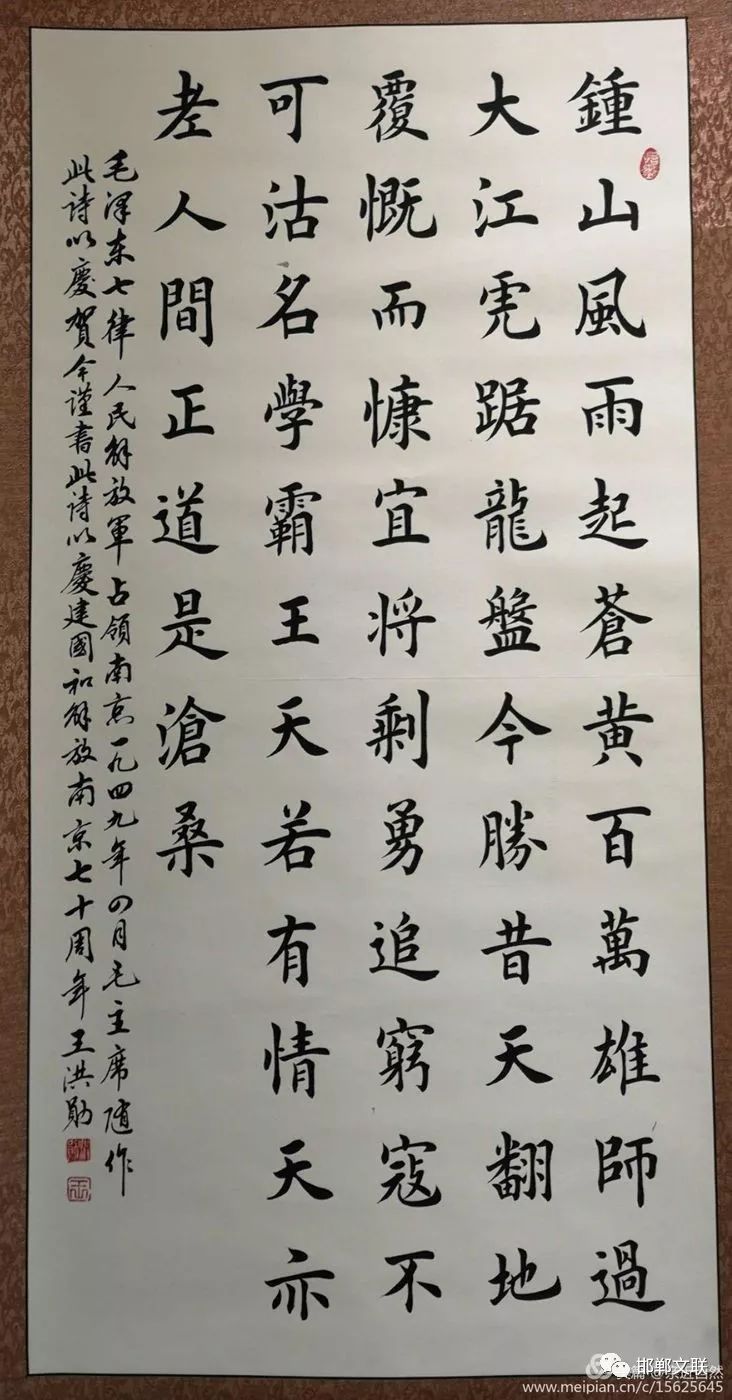 鍾山風雨起蒼黃百萬雄師過
大江虎踞龍盤今勝昔天翻地
覆慨而慷宜将剩勇追窮寇不
可沽名學霸王天若有情天亦
老人間正道是滄桑
毛泽东七律人民解放軍占領南京一九四九年四月毛主席随作
此诗以慶賀今谨書此诗以慶建國和解放南京七十周年王洪勛
邯郸文联
www.meipian.cn/c/15625645